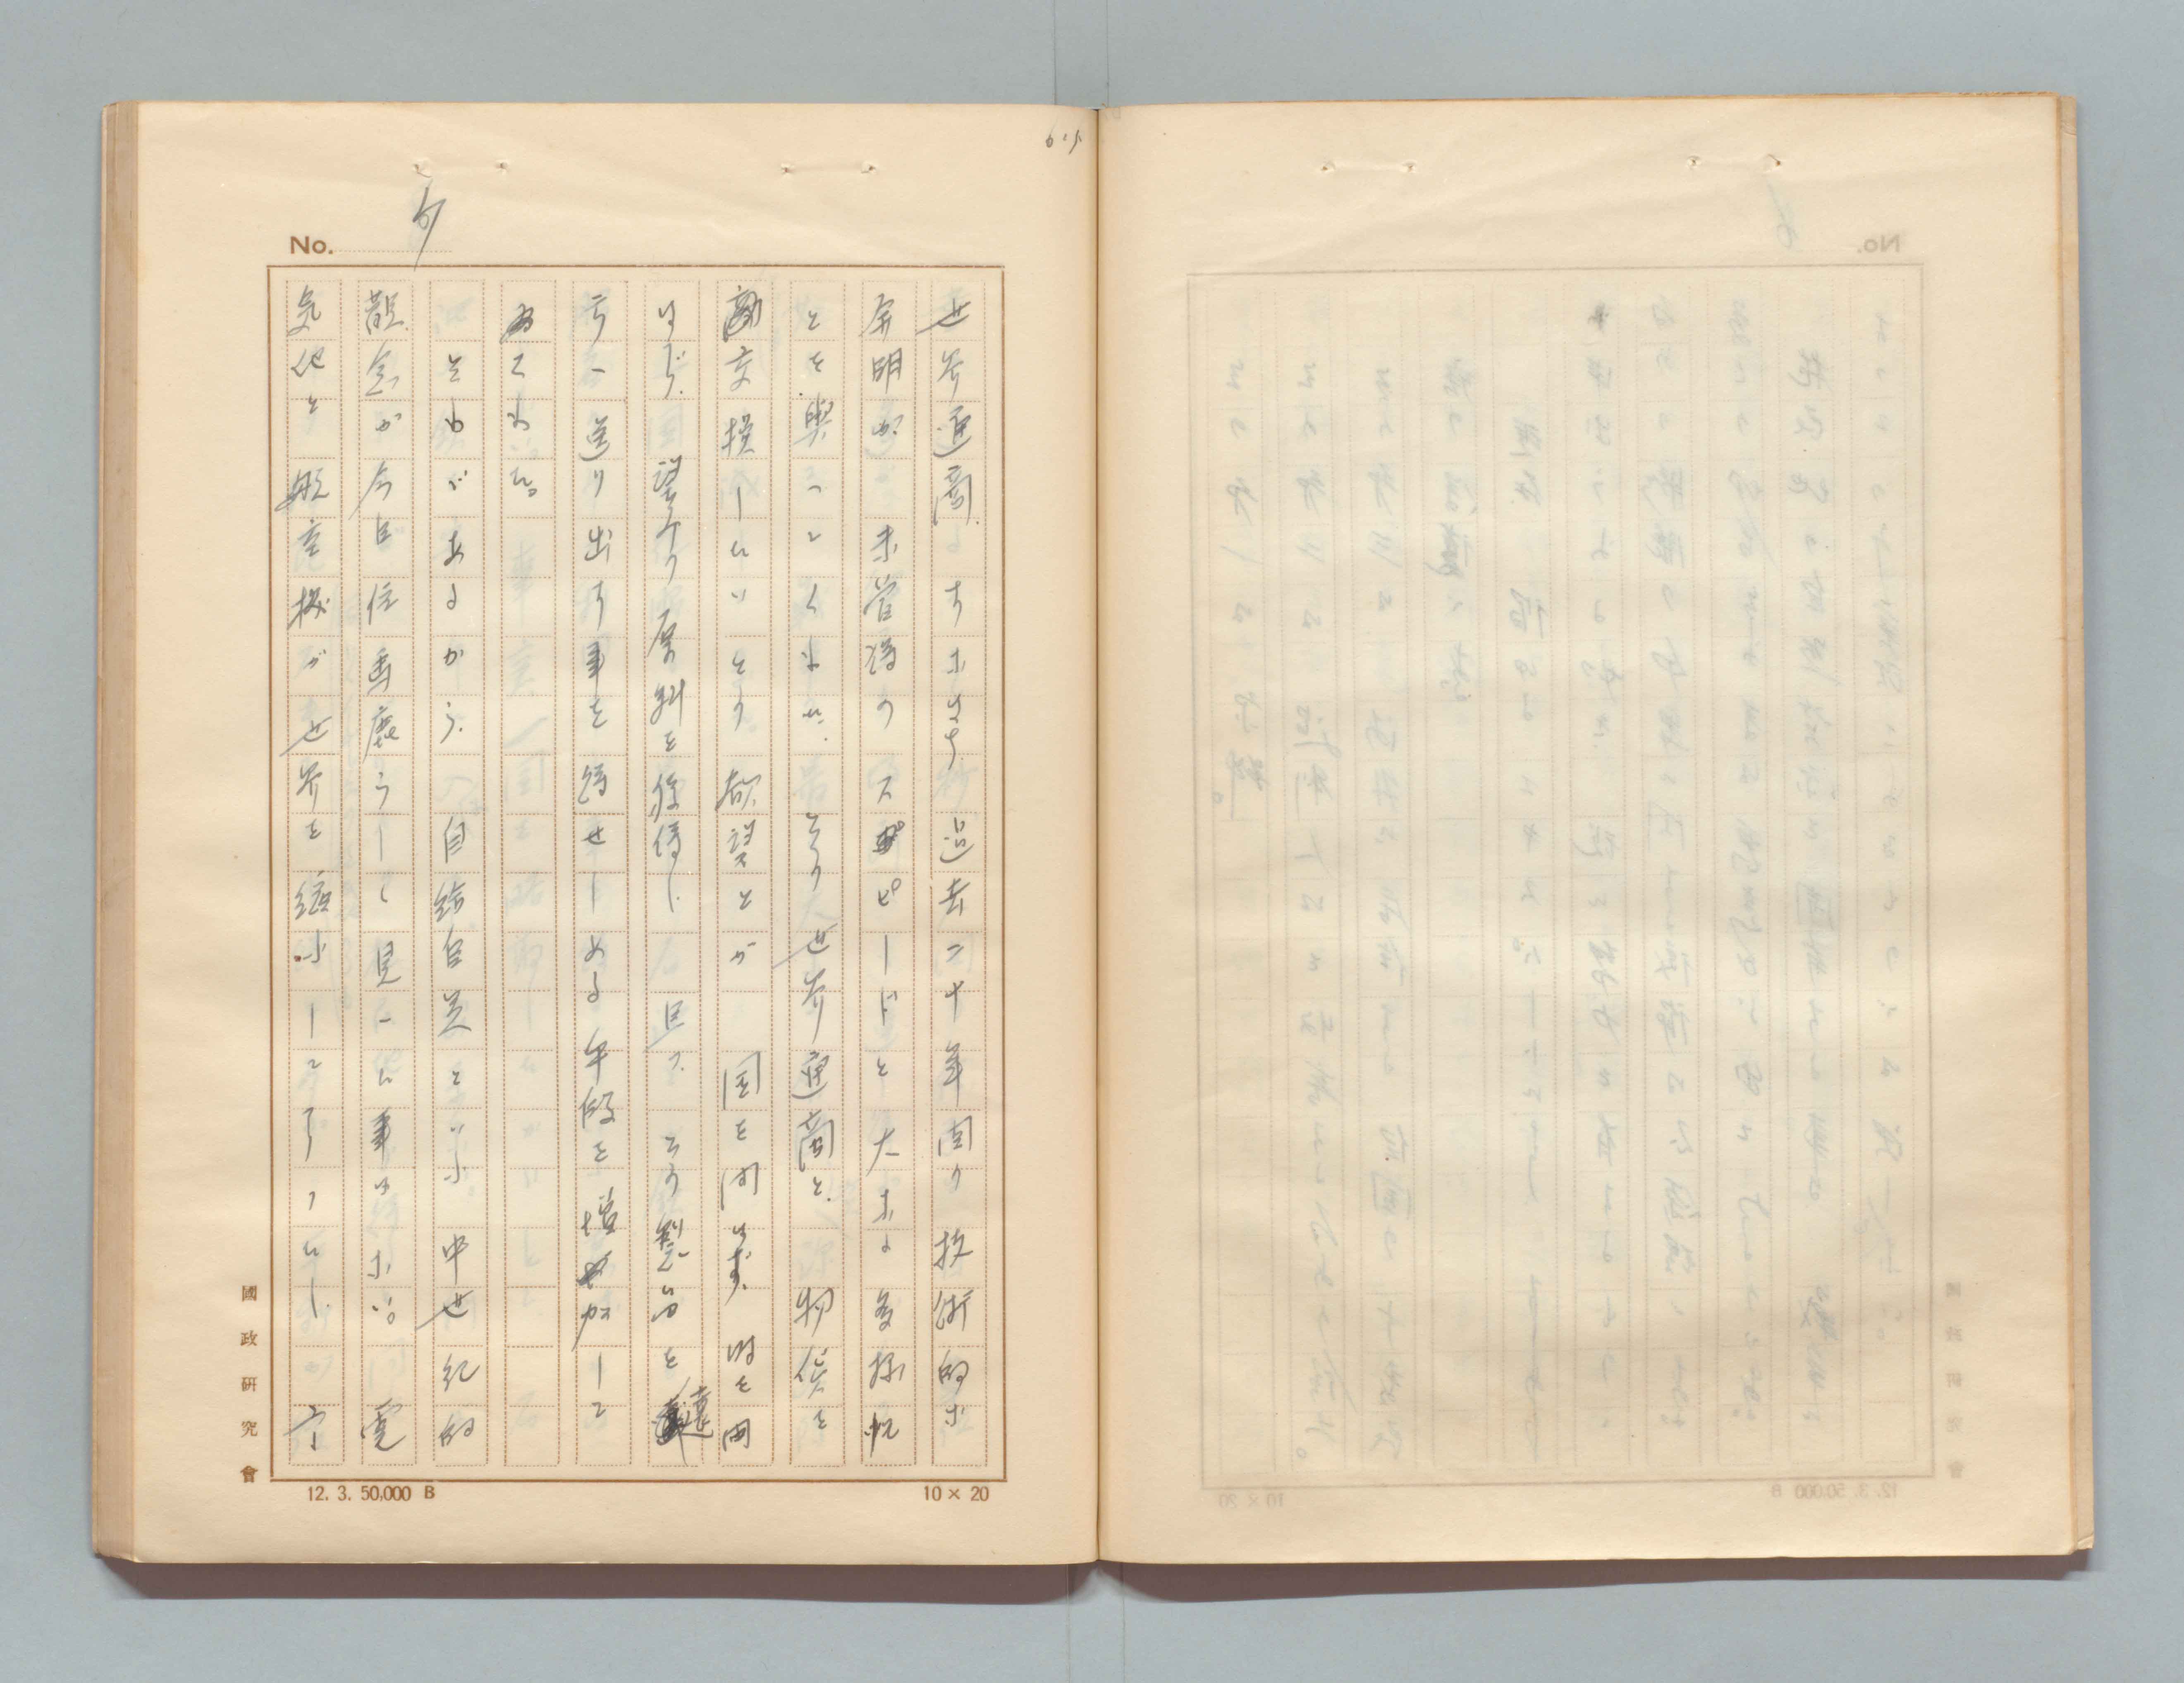 No.
世界通商、すなはち過去二十年間の技術的な
発明が、未曾得のスピードと大なる多様性
とを與へてくれた。その世界通商と、物資を
交換したいとの欲望とが国を問はず、時を問
はず、望みの原料を獲得し、且つ、その製品を遠
方へ送り出す事を得せしめる手段を増加して
ゐてくれた。
それであるから、自給自足といふ中世紀的
観念が今日位馬鹿らしく見へた事はない。電
気化と航空機が世界を縮小して了つたし、
國政研究會
12. 3. 50,000 B
10×20